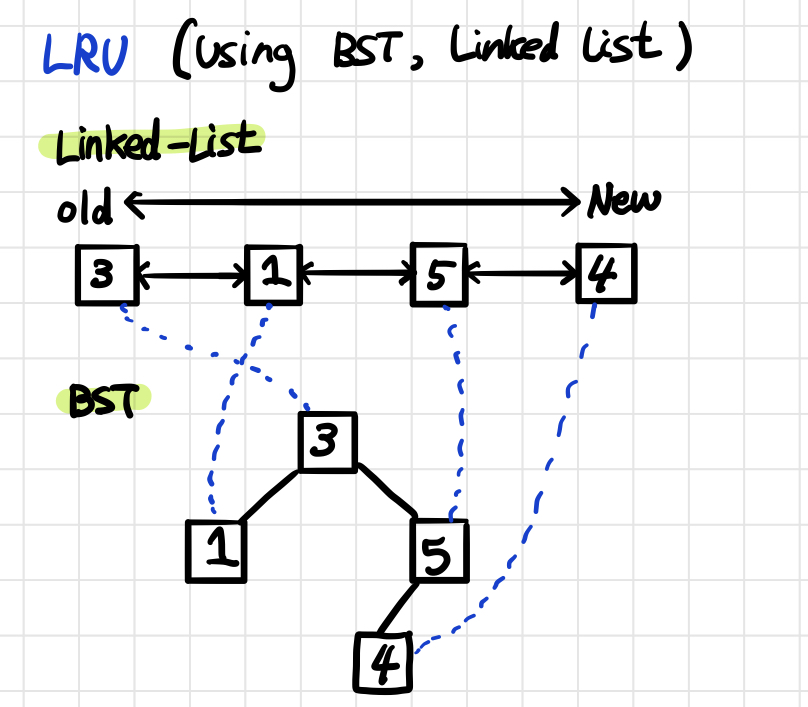 LRU (Using BST, Linked List)
Linked-List
old New
3 1 5 4
BST
3
1 5
4